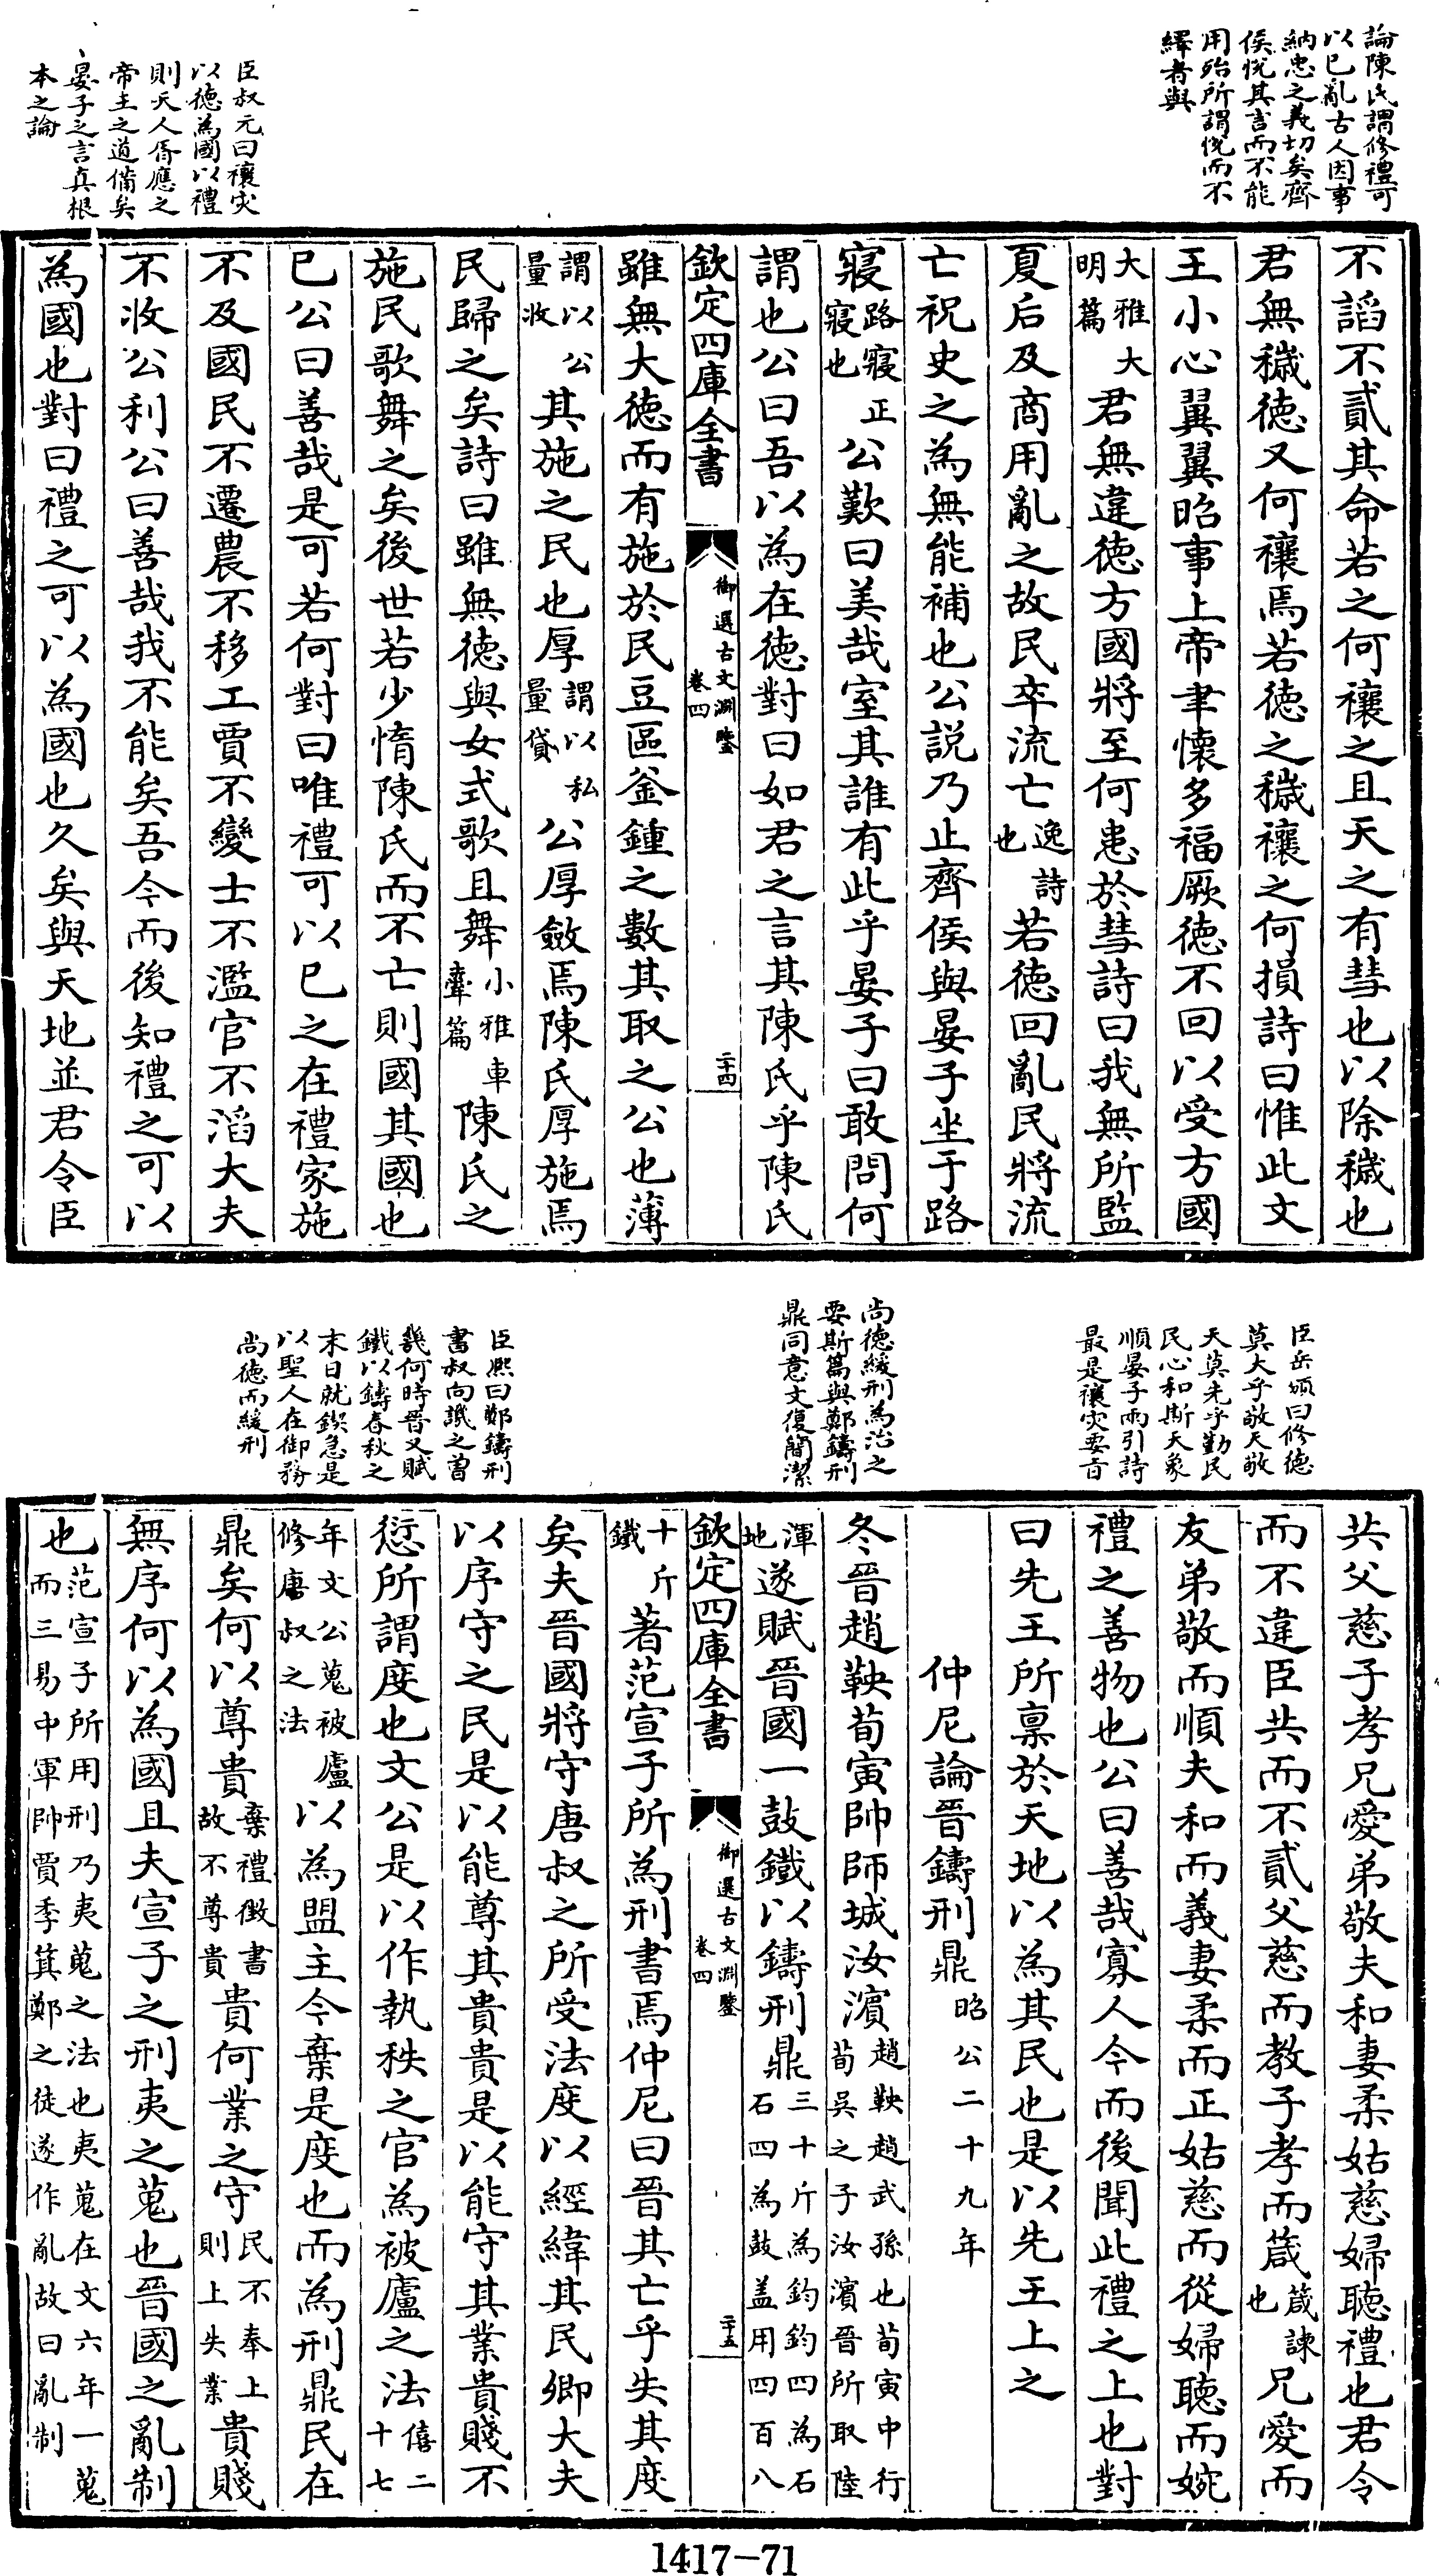 論陳氏謂修禮可
以已亂古人因事
納忠之義切矣齊
侯悦其言而不能
用殆所謂悦而不
繹者與
臣叔元曰禳灾
以徳為國以禮
則天人胥應之
帝王之道備矣
晏子之言真根
本之論
不謟不貳其命若之何禳之且天之有彗也以除穢也
君無穢徳又何禳焉若徳之穢禳之何損詩曰惟此文
王小心翼翼昭事上帝聿懐多福厥徳不回以受方國
大雅大明篇君無違徳方國將至何患於彗詩曰我無所監
夏后及商用亂之故民卒流亡逸詩也若徳回亂民將流
亡祝史之為無能補也公説乃止齊侯與晏子坐于路
寢路寢正寢也公歎曰美哉室其誰有此乎晏子曰敢問何
謂也公曰吾以為在徳對曰如君之言其陳氏乎陳氏
欽定四庫全書
御選古文淵鑒
卷四
二十四
雖無大徳而有施於民豆區釜鍾之數其取之公也薄
謂以公量收其施之民也厚謂以私量貸公厚斂焉陳氏厚施焉
民歸之矣詩曰雖無徳與女式歌且舞小雅車舝篇陳氏之
施民歌舞之矣後世若少惰陳氏而不亡則國其國也
已公曰善哉是可若何對曰唯禮可以已之在禮家施
不及國民不遷農不移工賈不變士不濫官不滔大夫
不收公利公曰善哉我不能矣吾今而後知禮之可以
為國也對曰禮之可以為國也久矣與天地並君令臣
臣岳頒曰修徳
莫大乎敬天敬
天莫先乎勤民
民心和斯天象
順晏子兩引詩
最是禳灾要㫖
尚徳緩刑為治之
要斯篇與鄭鑄刑
鼎同意文復簡潔
臣熙曰鄭鑄刑
書叔向譏之曽
幾何時晉又賦
鐵以鑄春秋之
末日就鍥急是
以聖人在御務
尚徳而緩刑
共父慈子孝兄愛弟敬夫和妻柔姑慈婦聽禮也君令
而不違臣共而不貳父慈而教子孝而箴箴諫也兄愛而
友弟敬而順夫和而義妻柔而正姑慈而從婦聽而婉
禮之善物也公曰善哉寡人今而後聞此禮之上也對
曰先王所禀於天地以為其民也是以先王上之
仲尼論晉鑄刑鼎昭公二十九年
冬晉趙鞅荀寅帥師城汝濵趙鞅趙武孫也荀寅中行荀吳之子汝濵晉所取陸
渾地遂賦晉國一鼓鐵以鑄刑鼎三十斤為鈞鈞四為石石四為鼓盖用四百八
欽定四庫全書
御選古文淵鑒
卷四
二十五
十斤鐵著范宣子所為刑書焉仲尼曰晉其亡乎失其度
矣夫晉國將守唐叔之所受法度以經緯其民卿大夫
以序守之民是以能尊其貴貴是以能守其業貴賤不
愆所謂度也文公是以作執秩之官為被廬之法僖二十七
年文公蒐被廬修唐叔之法以為盟主今棄是度也而為刑鼎民在
鼎矣何以尊貴棄禮徴書故不尊貴貴何業之守民不奉上則上失業貴賤
無序何以為國且夫宣子之刑夷之蒐也晉國之亂制
也范宣子所用刑乃夷蒐之法也夷蒐在文六年一蒐而三易中軍帥賈季箕鄭之徒遂作亂故曰亂制
1417-71